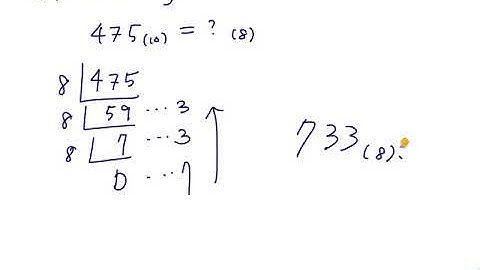 475(10) = ? (8)
8 475
8 59 … 3
8 7 … 3
0 … 7
733(8).